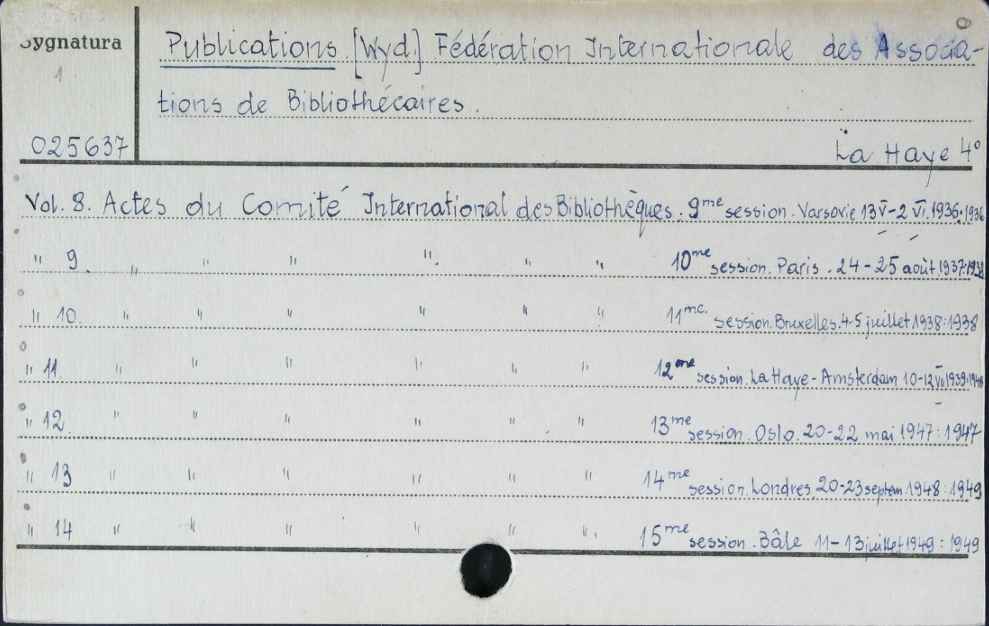 Sygnatura
1
025637
Publications [Wyd.] Fédération Internationale des Associa-
tions de Bibliothécaires.
La Haye 4°
Vol. 8. Actes du Comité International des Bibliothèques. 9me session. Varsovie 13 V-2 VI. 1936:1936
" 9. " " " " " " 10me session. Paris. 24-25 août 1937:
" 10. " " " " " " 11me. session. Bruxelles. 4-5 juillet 1938:1938
" 11 " " " " " " 12me session. La Haye-Amsterdam 10-12 1939:
" 12. " " " " " " 13me session. Oslo. 20-22 mai 1947:1947
" 13 " " " " " " 14me session. Londres 20-23 septem 1948:1949
" 14 " " " " " " 15me session. Bâle 11-13 juillet 1949:1949